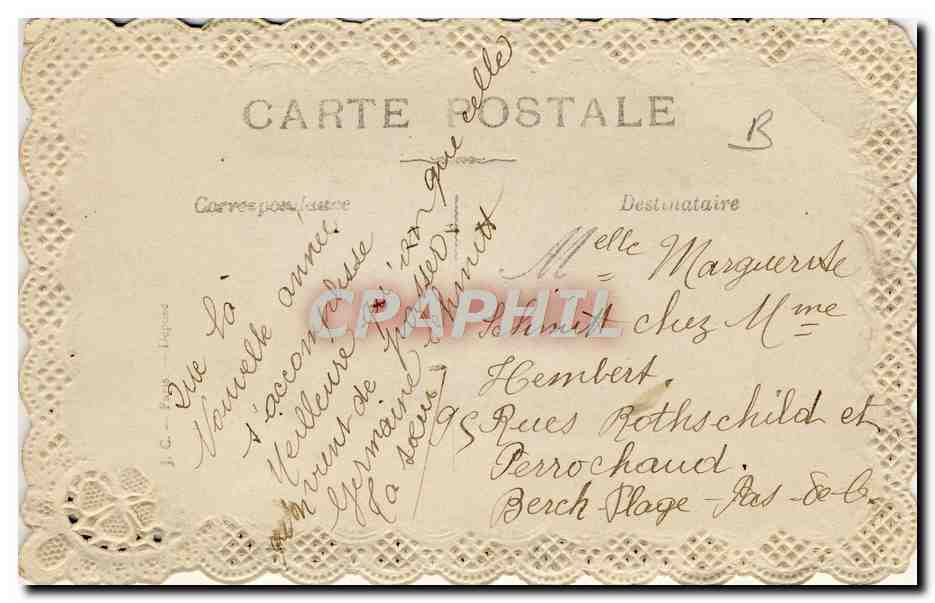 CARTE POSTALE
B
Correspondance
Destinataire
Que la
Nouvelle année
s'accomplisse
Meilleure que elle
qu'on vient de passer
Germaine Schmitt
ta soeur
Melle Marguerite
Schmitt chez Mme
Hembert.
95 Rues Rothschild et
Perrochaud.
Berck-Plage - Pas-de-C.
J. C. Paris Déposé
CPAPHIL